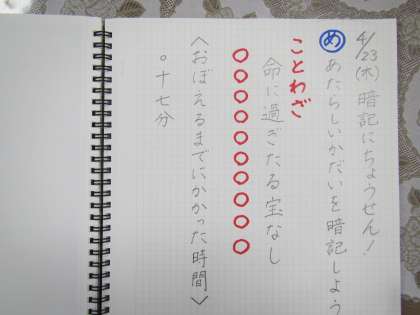 4/23(木) 暗記にちょうせん!
め あたらしいかだいを暗記しよう
ことわざ
命に過ぎたる宝なし
○○○○○○○○○○
〈おぼえるまでにかかった時間〉
○十七分